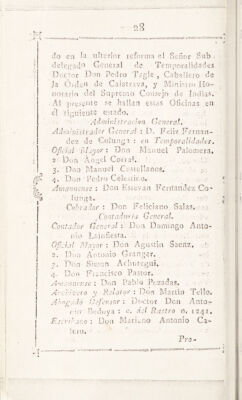 28
do en la ulterior reforma el Señor Sub
delegado General de Temporalidades
Doctor Don Pedro Tagle, Caballero de
la Orden de Calatrava, y Ministro Ho-
norario del Supremo Consejo de Indias.
Al presente se hallan estas Oficinas en
el siguiente estado.
Administracion General.
Administrador General: D. Feliz Fernan-
dez de Cutunga: en Temporalidades.
Oficial Mayor: Don Manuel Palomera.
2. Don Angel Corral.
3. Don Manuel Castellanos.
4. Don Pedro Celestino.
Amanuense: Don Estevan Fernandez Co-
lunga.
Cobrador: Don Feliciano Salas.
Contaduría General.
Contador General: Don Domingo Anto-
nio Lainfiesta.
Oficial Mayor: Don Agustin Saenz.
2. Don Antonio Granger.
3. Don Simon Achutegui.
4. Don Francisco Pastor.
Amanuense: Don Pablo Pezadas.
Archivero y Relator: Don Martin Tello.
Abogado Defensor: Doctor Don Anto-
nio Bedoya: c. del Rastro n. 1241.
Escribano: Don Mariano Antonio Ca-
lero.
Pro-